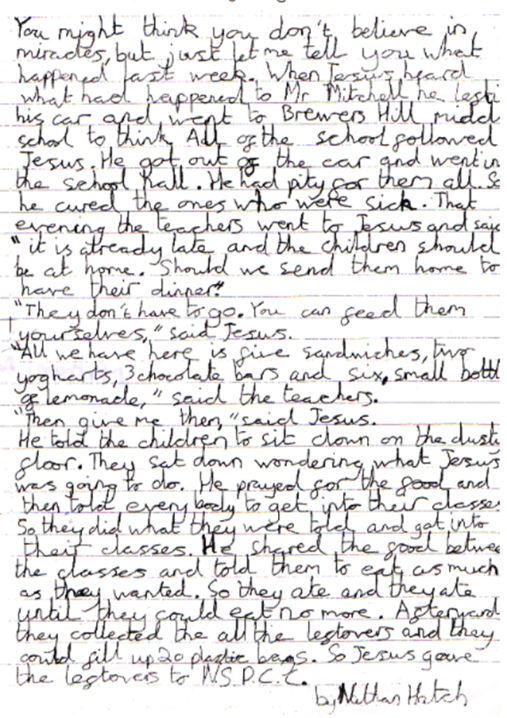 You might think you don't believe in
miracles, but just let me tell you what
happened last week. When Jesus heard
what had happened to Mr Mitchell he left
his car and went to Brewers Hill middel
school to think. All of the school followed
Jesus. He got out of the car and went in
the school hall. He had pity for them all. So
he cured the ones who were sick. That
evening the teachers went to Jesus and said
"it is already late and the children should
be at home. Should we send them home to
have their dinner?"
"They don't have to go. You can feed them
yourselves," said Jesus.
"All we have here is five sandwiches, two
yogharts, 3 chocolate bars and six, small bottl
of lemonade," said the teachers.
"Then give me then," said Jesus.
He told the children to sit down on the dusti
floor. They sat down wondering what Jesus
was going to do. He prayed for the food and
then told every body to get into their classes
So they did what they were told and got into
their classes. He shared the food betwee
the classes and told them to eat as much
as they wanted. So they ate and they ate
until they could eat no more. Afterward
they collected the all the leftovers and they
could fill up 20 plastic bags. So Jesus gave
the leftovers to N.S.P.C.C.
by Nathan Hatch